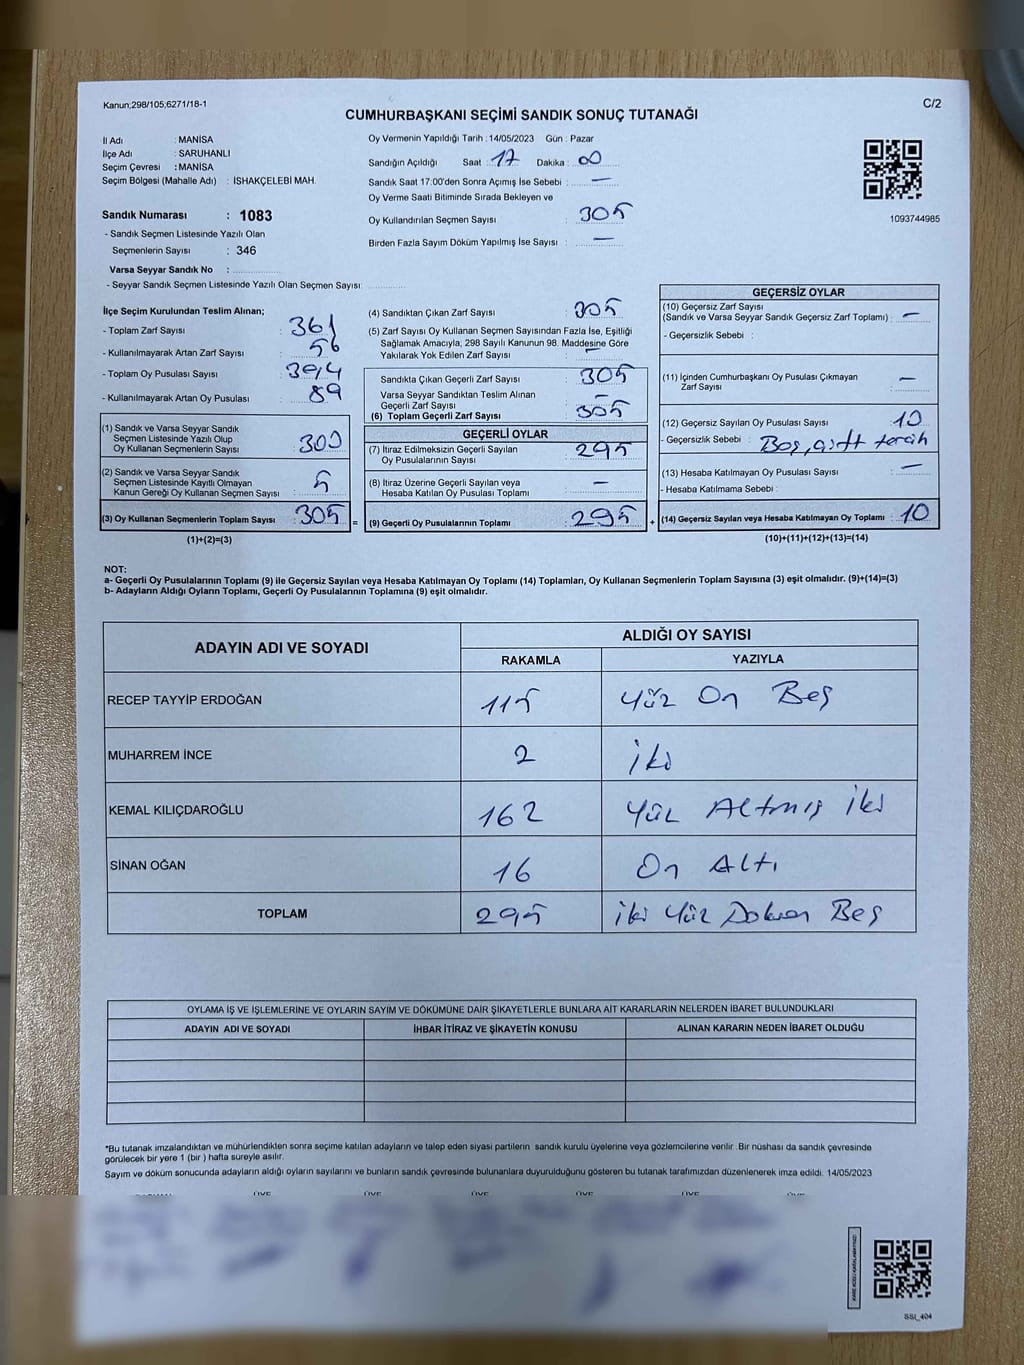 Kanun;298/105;6271/18-1
C/2
CUMHURBAŞKANI SEÇİMİ SANDIK SONUÇ TUTANAĞI
İl Adı : MANİSA
İlçe Adı : SARUHANLI
Seçim Çevresi : MANİSA
Seçim Bölgesi (Mahalle Adı) : İSHAKÇELEBİ MAH.
Sandık Numarası : 1083
- Sandık Seçmen Listesinde Yazılı Olan
Seçmenlerin Sayısı : 346
Varsa Seyyar Sandık No :
- Seyyar Sandık Seçmen Listesinde Yazılı Olan Seçmen Sayısı:
Oy Vermenin Yapıldığı Tarih : 14/05/2023 Gün : Pazar
Sandığın Açıldığı Saat : 17 Dakika : 00
Sandık Saat 17:00'den Sonra Açımış İse Sebebi : —
Oy Verme Saati Bitiminde Sırada Bekleyen ve
Oy Kullandırılan Seçmen Sayısı : 305
Birden Fazla Sayım Döküm Yapılmış İse Sayısı : —
1093744985
İlçe Seçim Kurulundan Teslim Alınan;
- Toplam Zarf Sayısı : 361
- Kullanılmayarak Artan Zarf Sayısı : 56
- Toplam Oy Pusulası Sayısı : 394
- Kullanılmayarak Artan Oy Pusulası : 89
(1) Sandık ve Varsa Seyyar Sandık
Seçmen Listesinde Yazılı Olup
Oy Kullanan Seçmenlerin Sayısı : 300
(2) Sandık ve Varsa Seyyar Sandık
Seçmen Listesinde Kayıtlı Olmayan
Kanun Gereği Oy Kullanan Seçmen Sayısı : 5
(3) Oy Kullanan Seçmenlerin Toplam Sayısı : 305 =
(1)+(2)=(3)
(4) Sandıktan Çıkan Zarf Sayısı : 305
(5) Zarf Sayısı Oy Kullanan Seçmen Sayısından Fazla İse, Eşitliği
Sağlamak Amacıyla, 298 Sayılı Kanunun 98. Maddesine Göre
Yakılarak Yok Edilen Zarf Sayısı : —
Sandıkta Çıkan Geçerli Zarf Sayısı : 305
Varsa Seyyar Sandıktan Teslim Alınan
Geçerli Zarf Sayısı : —
(6) Toplam Geçerli Zarf Sayısı : 305
GEÇERLİ OYLAR
(7) İtiraz Edilmeksizin Geçerli Sayılan
Oy Pusulalarının Sayısı : 295
(8) İtiraz Üzerine Geçerli Sayılan veya
Hesaba Katılan Oy Pusulası Toplamı : —
(9) Geçerli Oy Pusulalarının Toplamı : 295 +
GEÇERSİZ OYLAR
(10) Geçersiz Zarf Sayısı
(Sandık ve Varsa Seyyar Sandık Geçersiz Zarf Toplamı) : —
- Geçersizlik Sebebi :
(11) İçinden Cumhurbaşkanı Oy Pusulası Çıkmayan
Zarf Sayısı : —
(12) Geçersiz Sayılan Oy Pusulası Sayısı : 10
- Geçersizlik Sebebi : Boş, çift tercih
(13) Hesaba Katılmayan Oy Pusulası Sayısı : —
- Hesaba Katılmama Sebebi :
(14) Geçersiz Sayılan veya Hesaba Katılmayan Oy Toplamı : 10
(10)+(11)+(12)+(13)=(14)
NOT:
a- Geçerli Oy Pusulalarının Toplamı (9) ile Geçersiz Sayılan veya Hesaba Katılmayan Oy Toplamı (14) Toplamları, Oy Kullanan Seçmenlerin Toplam Sayısına (3) eşit olmalıdır. (9)+(14)=(3)
b- Adayların Aldığı Oyların Toplamı, Geçerli Oy Pusulalarının Toplamına (9) eşit olmalıdır.
ADAYIN ADI VE SOYADI
ALDIĞI OY SAYISI
RAKAMLA YAZIYLA
RECEP TAYYİP ERDOĞAN 115 Yüz On Beş
MUHARREM İNCE 2 İki
KEMAL KILIÇDAROĞLU 162 Yüz Altmış İki
SİNAN OĞAN 16 On Altı
TOPLAM 295 İki Yüz Doksan Beş
OYLAMA İŞ VE İŞLEMLERİNE VE OYLARIN SAYIM VE DÖKÜMÜNE DAİR ŞİKAYETLERLE BUNLARA AİT KARARLARIN NELERDEN İBARET BULUNDUKLARI
ADAYIN ADI VE SOYADI İHBAR İTİRAZ VE ŞİKAYETİN KONUSU ALINAN KARARIN NEDEN İBARET OLDUĞU
*Bu tutanak imzalandıktan ve mühürlendikten sonra seçime katılan adayların ve talep eden siyasi partilerin sandık kurulu üyelerine veya gözlemcilerine verilir .Bir nüshası da sandık çevresinde
görülecek bir yere 1 (bir ) hafta süreyle asılır.
Sayım ve döküm sonucunda adayların aldığı oyların sayılarını ve bunların sandık çevresinde bulunanlara duyurulduğunu gösteren bu tutanak tarafımızdan düzenlenerek imza edildi. 14/05/2023
ÜYE ÜYE ÜYE ÜYE ÜYE ÜYE
SSI_404